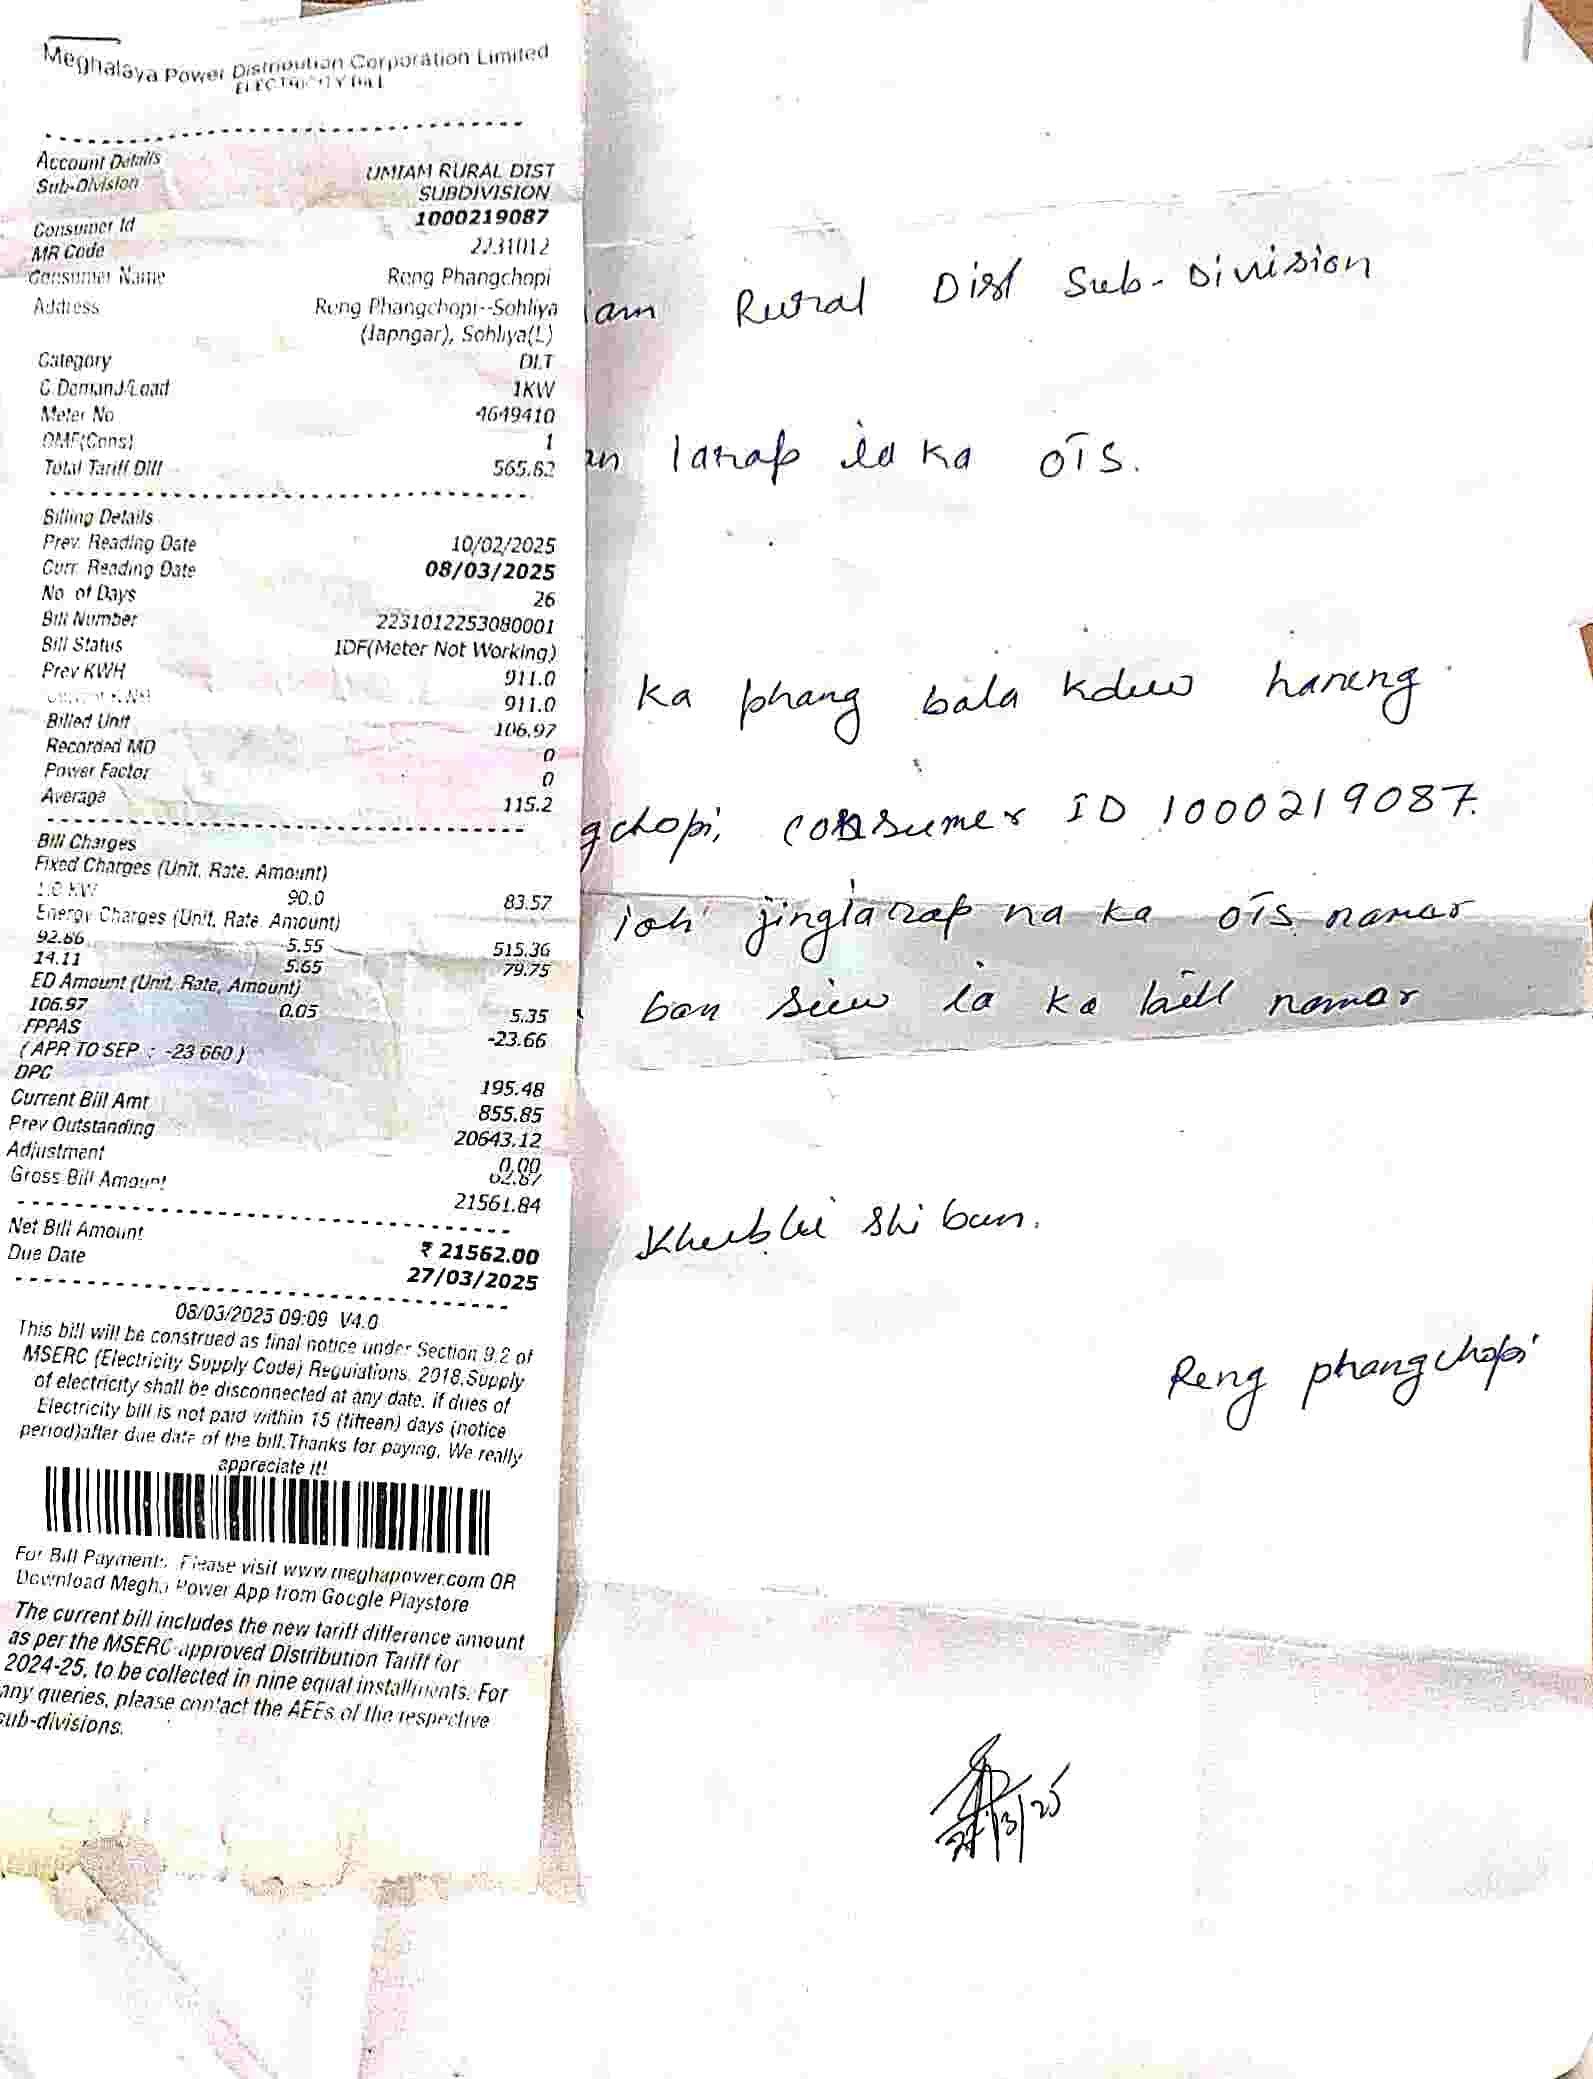 Meghalaya Power Distribution Corporation Limited
ELECTRICITY BILL
Account Details
Sub-Division UMIAM RURAL DIST
SUBDIVISION
Consumer Id 1000219087
MR Code 2231012
Consumer Name Reng Phangchopi
Address Reng Phangchopi--Sohliya
(Japngar), Sohliya(L)
Category DLT
C Demand/Load 1KW
Meter No 4649410
OMF(Cons) 1
Total Tariff Diff 565.82
Billing Details
Prev. Reading Date 10/02/2025
Curr. Reading Date 08/03/2025
No of Days 26
Bill Number 2231012253080001
Bill Status IDF(Meter Not Working)
Prev KWH 911.0
911.0
Billed Unit 106.97
Recorded MD 0
Power Factor 0
Average 115.2
Bill Charges
Fixed Charges (Unit, Rate, Amount)
1.0 KW 90.0 83.57
Energy Charges (Unit, Rate, Amount)
92.86 5.55 515.36
14.11 5.65 79.75
ED Amount (Unit, Rate, Amount)
106.97 0.05 5.35
FPPAS -23.66
( APR TO SEP : -23.660 )
DPC 195.48
Current Bill Amt 855.85
Prev Outstanding 20643.12
Adjustment 0.00
62.87
Gross Bill Amount 21561.84
Net Bill Amount ₹ 21562.00
Due Date 27/03/2025
08/03/2025 09:09 V4.0
This bill will be construed as final notice under Section 9.2 of
MSERC (Electricity Supply Code) Regulations, 2018.Supply
of electricity shall be disconnected at any date, if dues of
Electricity bill is not paid within 15 (fifteen) days (notice
period)after due date of the bill.Thanks for paying, We really
appreciate it!
For Bill Payment:. Please visit www.meghapower.com OR
Download Megha Power App from Google Playstore
The current bill includes the new tariff difference amount
as per the MSERC approved Distribution Tariff for
2024-25, to be collected in nine equal installments. For
any queries, please contact the AEEs of the respective
sub-divisions.
iam Rural Dist Sub-Division
an ïarap ïa ka OTS.
ka phang bala kdew haneng
gchopi, consumer ID 1000219087.
ioh jingïarap na ka OTS namar
ban siew ïa ka bill namar
Khublei shibun.
Reng phangchopi